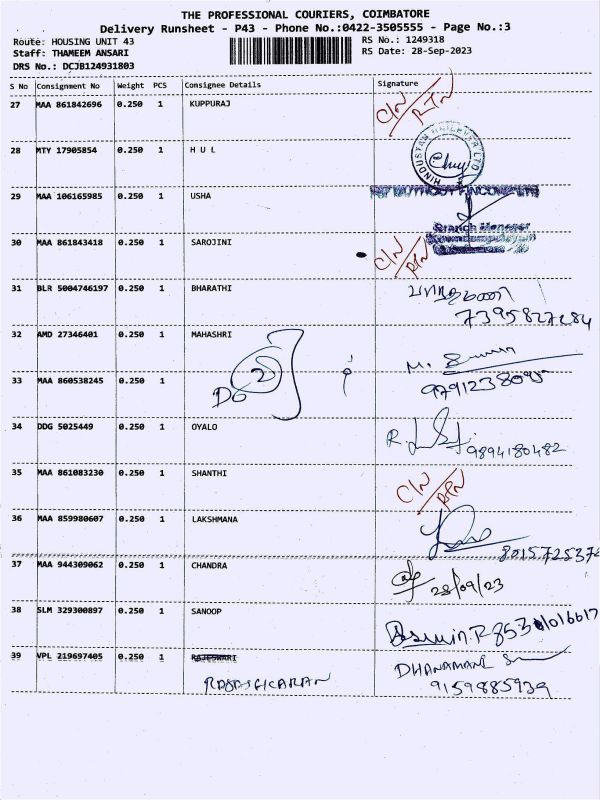 THE PROFESSIONAL COURIERS, COIMBATORE
Delivery Runsheet - P43 - Phone No.:0422-3505555 - Page No.:3
Route: HOUSING UNIT 43 RS No.: 1249318
Staff: THAMEEM ANSARI RS Date: 28-Sep-2023
DRS No.: DCJB124931803
S No Consignment No Weight PCS Consignee Details Signature
27 MAA 861842696 0.250 1 KUPPURAJ C/N RTN
28 MTY 17905854 0.250 1 H U L
29 MAA 106165985 0.250 1 USHA
Branch Manager
30 MAA 861843418 0.250 1 SAROJINI C/N RTN
31 BLR 5004746197 0.250 1 BHARATHI
7395827284
32 AMD 27346401 0.250 1 MAHASHRI
33 MAA 860538245 0.250 1 DG 2
34 DDG 5025449 0.250 1 OYALO
9894180482
35 MAA 861083230 0.250 1 SHANTHI C/N RTN
36 MAA 859980607 0.250 1 LAKSHMANA
37 MAA 944309062 0.250 1 CHANDRA 28/09/23
38 SLM 329300897 0.250 1 SANOOP
39 VPL 219697405 0.250 1 RAJESWARI DHANAMANI
9159885939